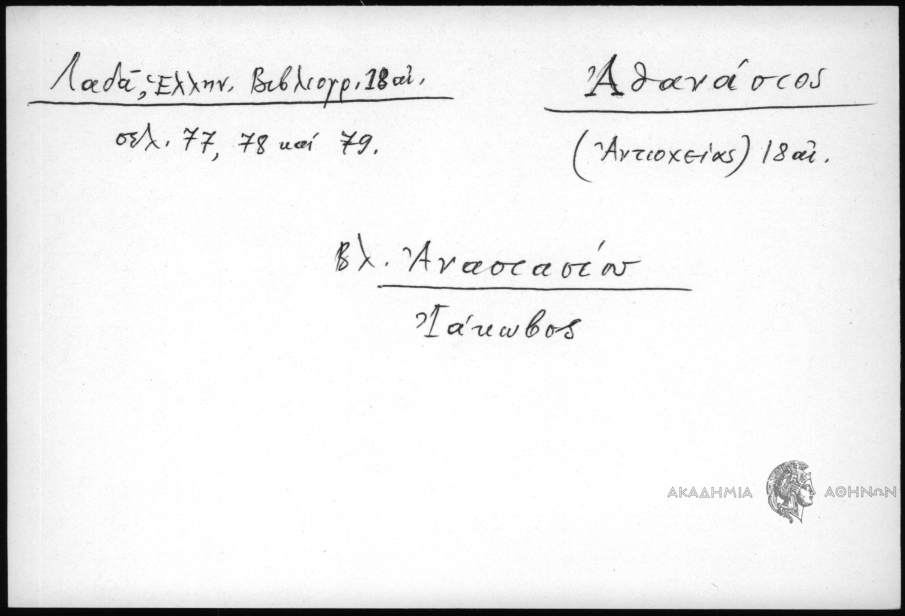 Λαδᾶ, Ἑλλην. Βιβλιογρ. 18 αἰ.
σελ. 77, 78 καί 79.
Ἀθανάσιος
(Ἀντιοχείας) 18 αἰ.
Βλ. Ἀναστασίου
Ἰάκωβος
ΑΚΑΔΗΜΙΑ ΑΘΗΝΩΝ